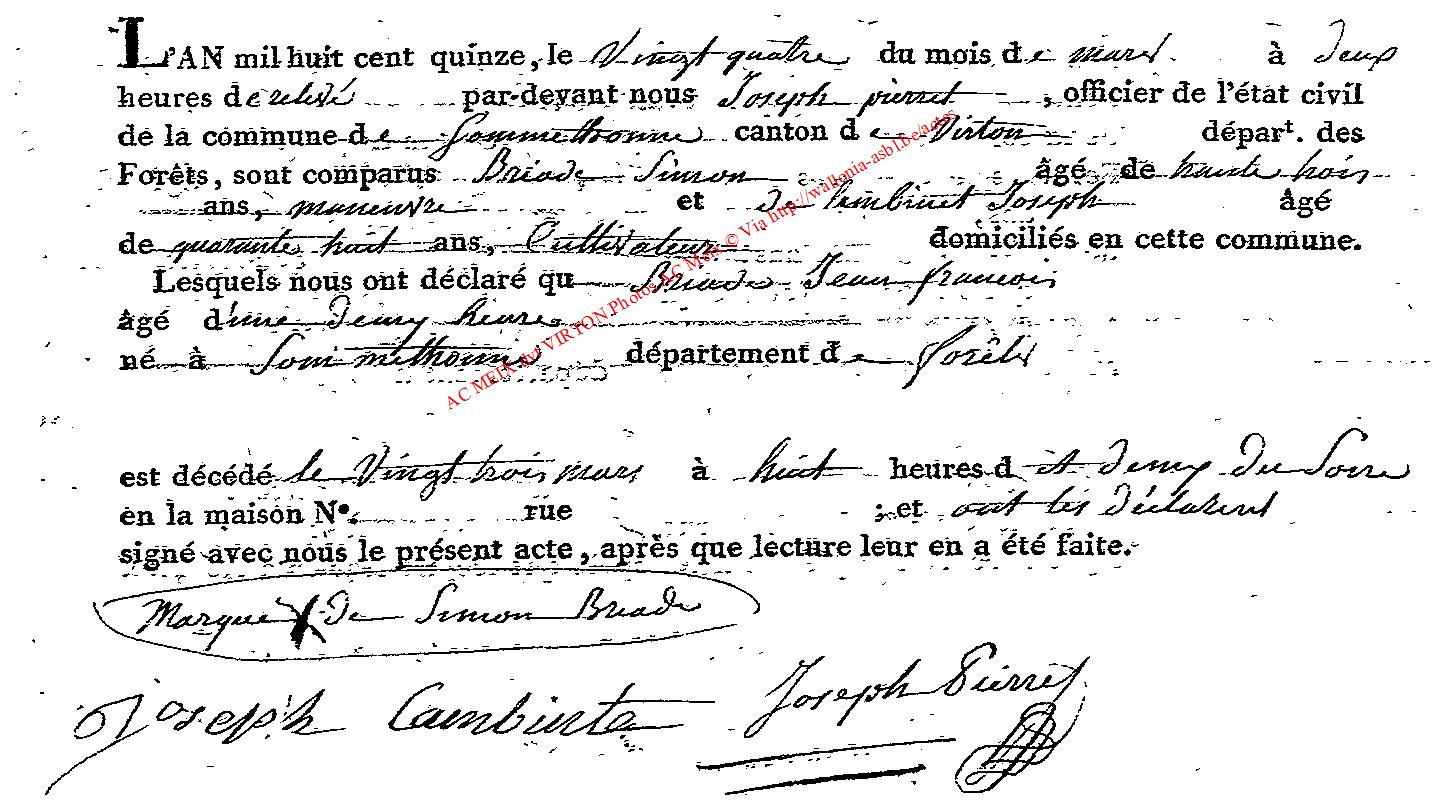 L'AN mil huit cent quinze, le Vingt quatre du mois de mars à deux
heures de relevé par-devant nous Joseph pierret, officier de l'état civil
de la commune de Sommethonne canton de Virton départ. des
Forêts, sont comparus Briade Simon âgé de trente trois
ans, maneuvre et Joseph âgé
de quarante huit ans, Cultivateur domiciliés en cette commune.
Lesquels nous ont déclaré qu Briade Jean francois
âgé d'une demy heure
né à Sommethonne département de forêts
est décédé le Vingt trois mars à huit heures d et demy du Soire
en la maison N°. rue ; et ont les déclarent
signé avec nous le présent acte, après que lecture leur en a été faite.
Marque X de Simon Briade
Joseph Joseph Pierret
AC MEIX dvt VIRTON Photos AC Meix © Via http://wallonia-asbl.be/actes